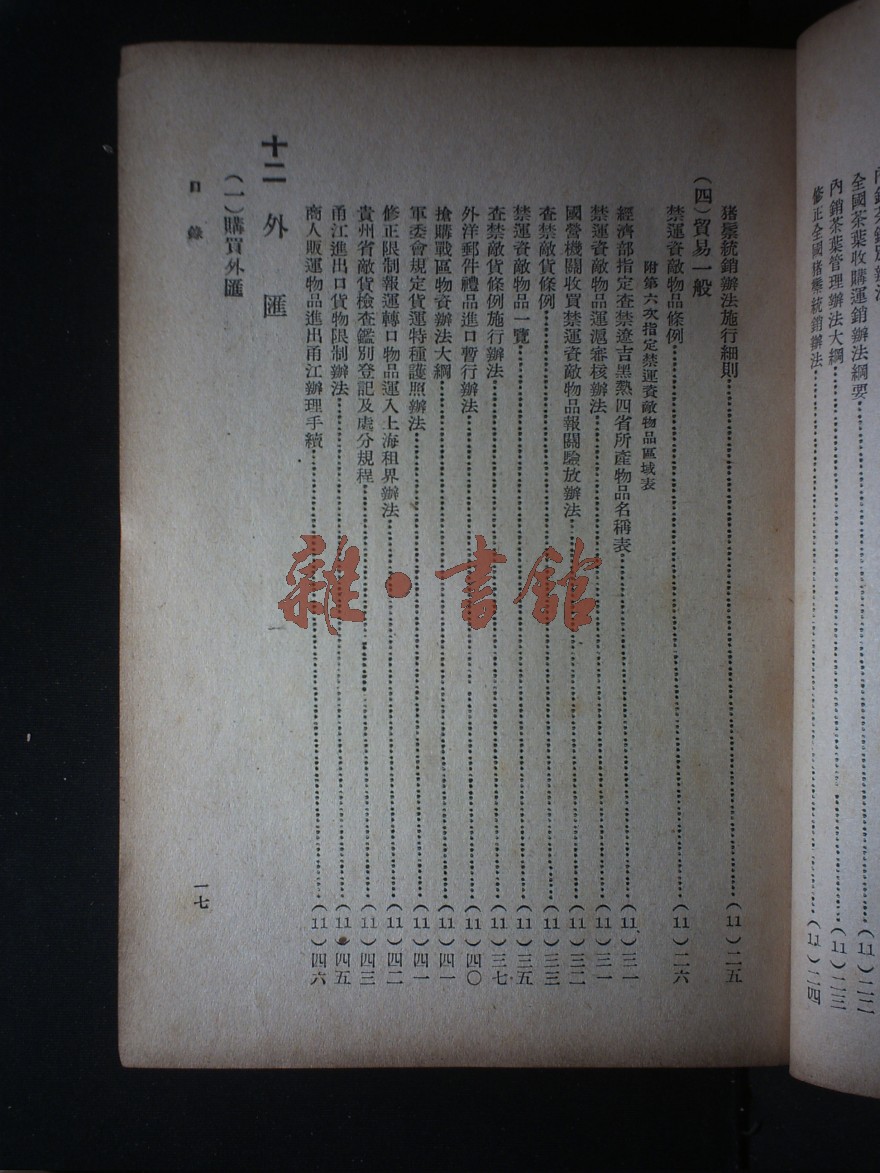 全國茶葉收購運銷辦法綱要……(11)二二
內銷茶葉管理辦法大綱……(11)二三
修正全國猪鬃統銷辦法……(11)二四
猪鬃統銷辦法施行細則……(11)二五
(四)貿易一般
禁運資敵物品條例……(11)二六
附第六次指定禁運資敵物品區域表
經濟部指定查禁遼吉黑熱四省所產物品名稱表……(11)三一
禁運資敵物品運滬審核辦法……(11)三一
國營機關收買禁運資敵物品報關驗放辦法……(11)三二
查禁敵貨條例……(11)三三
禁運資敵物品一覽……(11)三五
查禁敵貨條例施行辦法……(11)三七
外洋郵件禮品進口暫行辦法……(11)四〇
搶購戰區物資辦法大綱……(11)四一
軍委會規定貨運特種護照辦法……(11)四一
修正限制報運轉口物品運入上海租界辦法……(11)四二
貴州省敵貨檢查鑑別登記及處分規程……(11)四三
甬江進出口貨物限制辦法……(11)四五
商人販運物品進出甬江辦理手續……(11)四六
十二 外匯
(一)購買外匯
目錄
一七
雜·書館